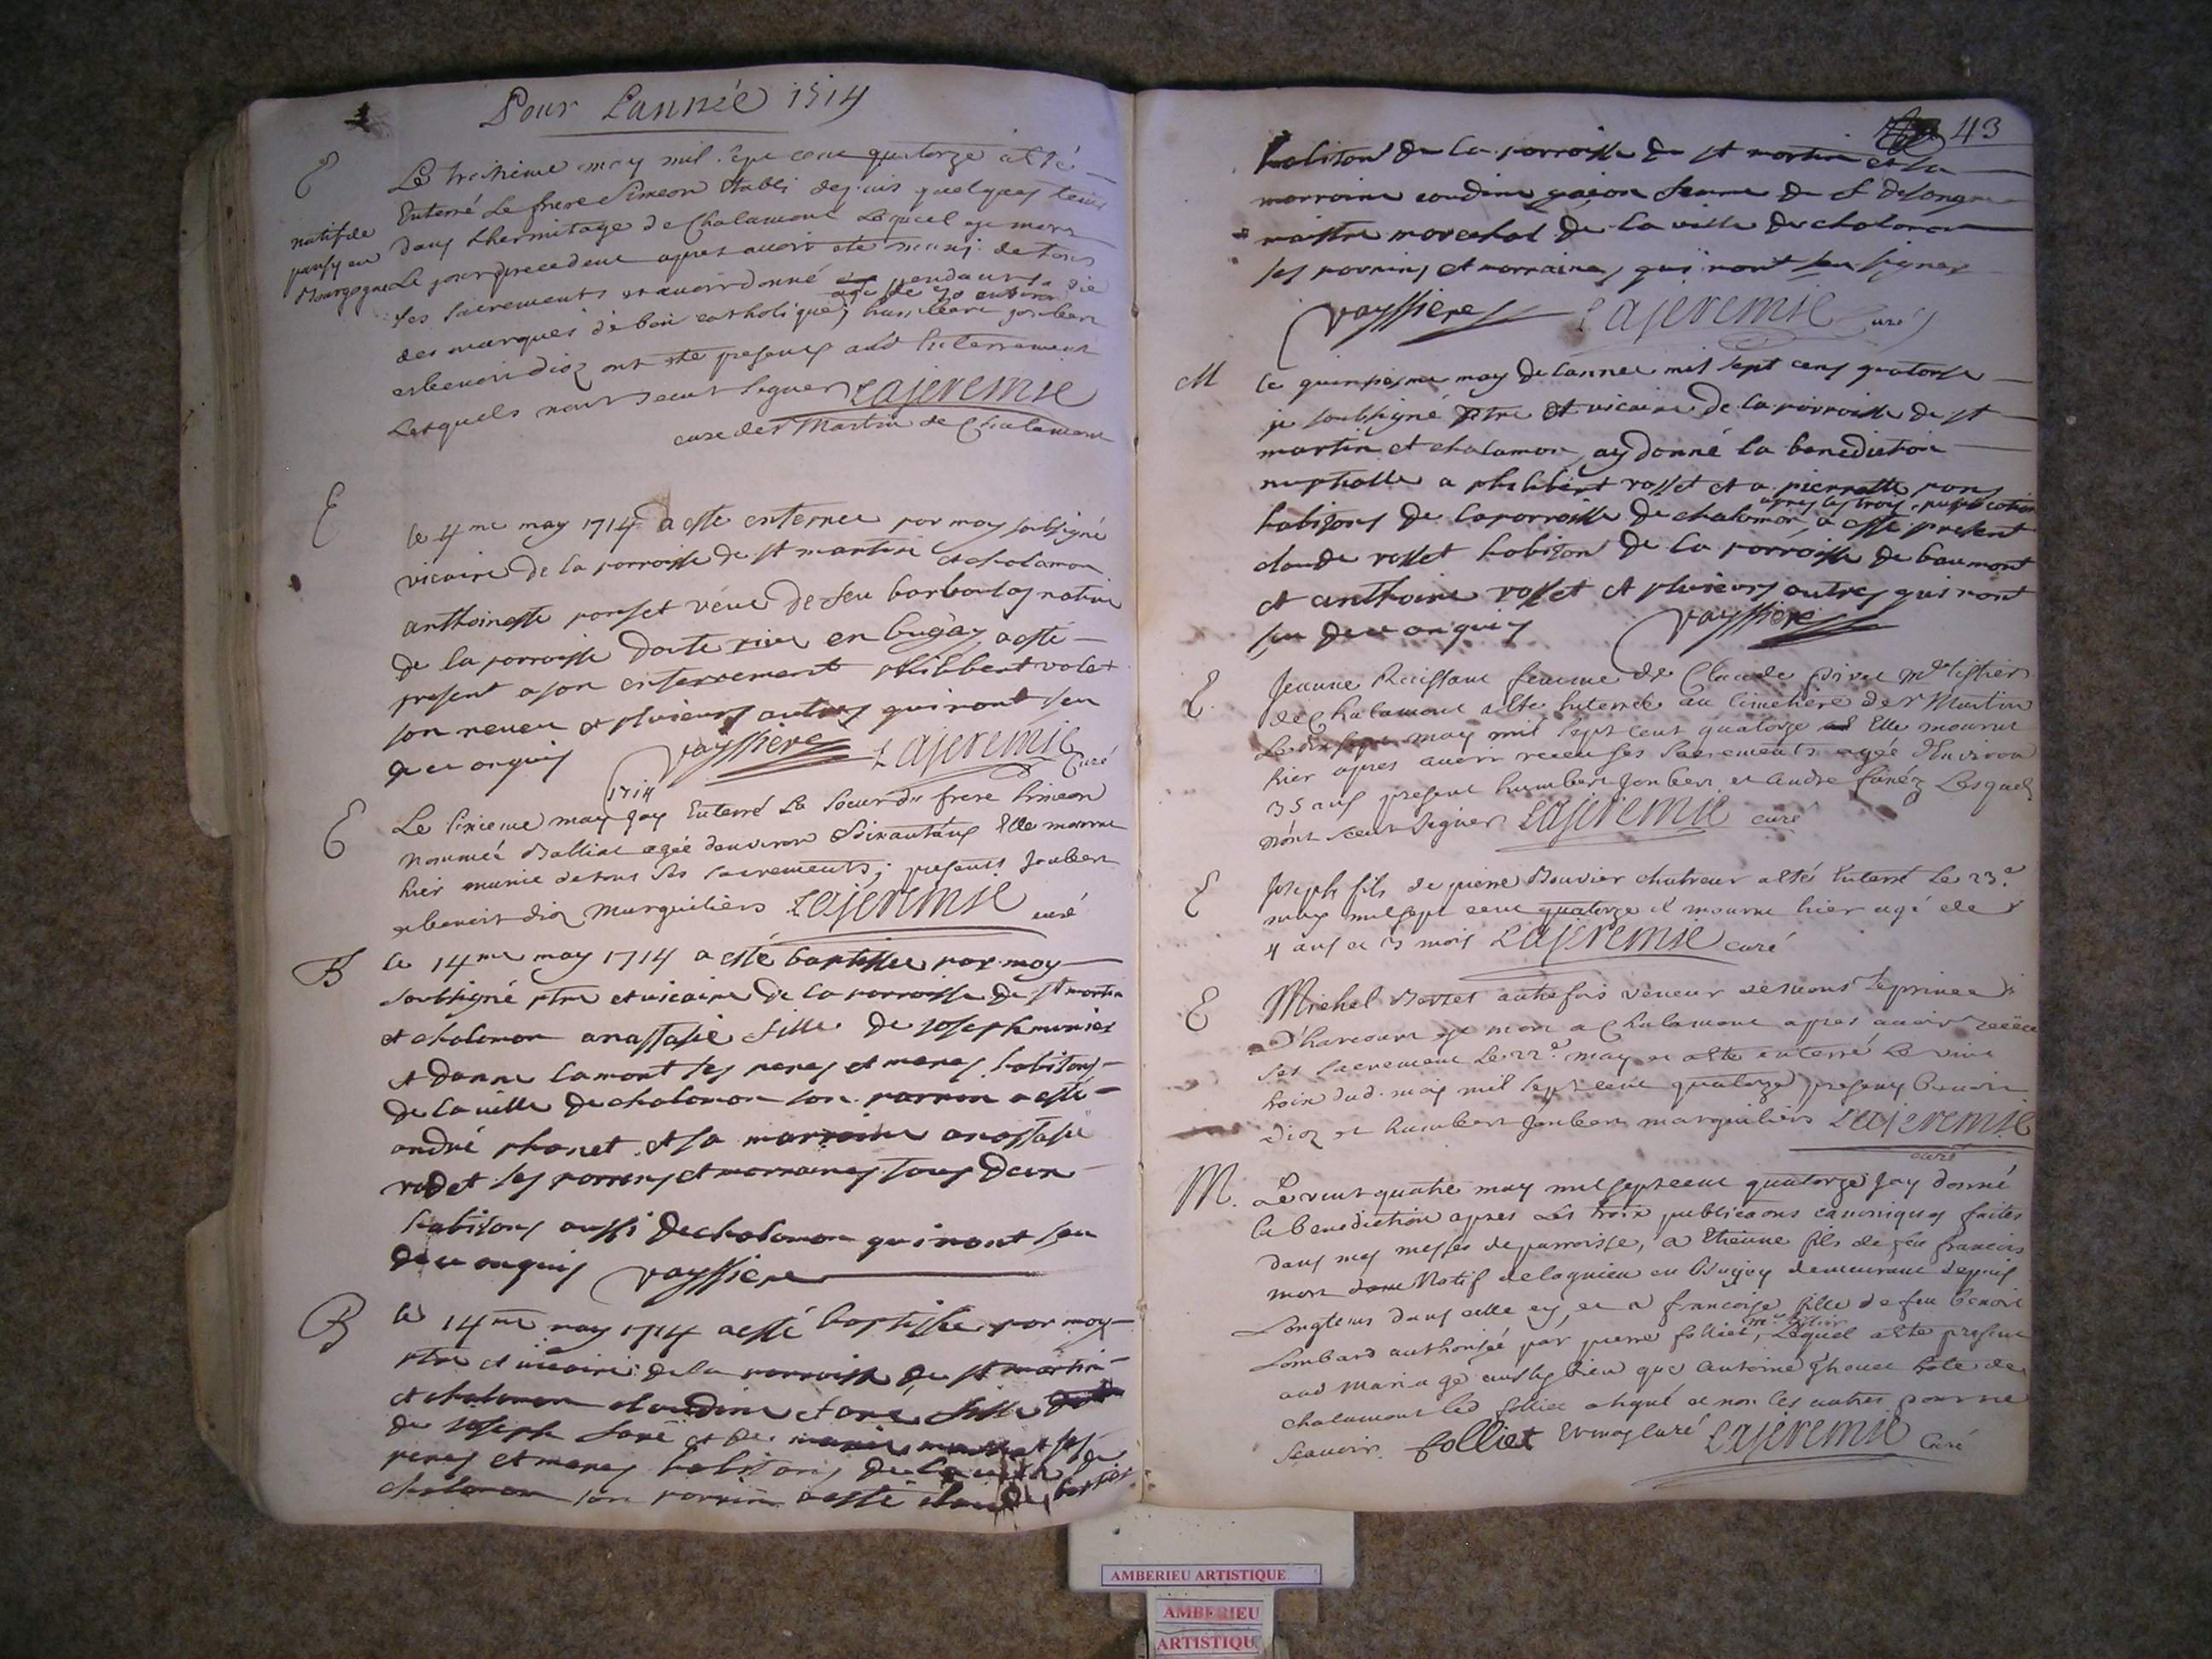 Pour Lannée 1714
E
Le troisieme may mil sept cent quatorze a esté
Enterré Le frere Simeon Etabli depuis quelques tems
natif de
dans Lhermitage de Chalamont Lequel est mort
en
Bourgogne
Le jour precedent apres avoir eté muni de tous
ses sacrements et avoir donné pendant sa vie
agé de 70 environ
des marques de bon catholique, humbert joubert
et benoit dioz ont eté presents aud Enterrement
Lesquels n'ont sceut signer Lajeremie
curé de st Martin de Chalamont
E
le 4me may 1714 a esté enterree par moy soubsigné
vicaire de la parroisse de st martin et chalamon
anthoinette ponset veue de feu barboulas native
de la parroisse en bugay, a esté
present a son enterrement philibert volet
son neveu et plusieurs autres qui nont seu
de ce enquis vayssiere Lajeremie Curé
1714
E
Le sixieme may Jay Enterré La soeur du frere simeon
nommée Balliat agée denviron soixante ans Elle mourut
hier munie de tous ses sacrements; presents Joubert
et benoit dioz Marguilliers Lajeremie curé
B
le 14me may 1714 a esté baptissee par moy
soubsigné ptre et vicaire de la parroisse de st martin
et chalamon anastasie fille de joseph munier
et danne lamont ses peres et meres habitans
de la ville de chalamon son parrin a esté
andré phanet et sa marraine anastasie
rodet les parrins et marraines tous deux
habitans aussi de chalamon qui nont seu
de ce enquis vayssiere
B
le 14me may 1714 a esté baptissee par moy
ptre et vicaire de la parroisse de st martin
et chalamon claudine fille
de joseph et de marie ses
peres et meres habitans de la ville de
chalamon son parrin a esté claude
43
habitant de la parroisse de st martin et la
marraine claudine femme de
maistre marechal de la ville de chalamon
les parrins et marraines qui nont seu signer
vayssiere Lajeremie Curé
M
le quinziesme may de lannee mil sept cens quatorse
je soubsigné ptre et vicaire de la parroisse de st
martin et chalamon, ay donné la benediction
nuptialle a philibert rosset et a pierrette pons
apres les trois publications
habitans de la parroisse de chalamon, a esté present
claude rosset habitant de la parroisse de baumont
et anthoine rosset et plusieurs autres qui nont
seu de ce enquis vayssiere
E.
Jeanne Raissant femme de Claude md
de Chalamont a eté Enterrée au cimetiere de st Martin
Le dix sept may mil sept cent quatorze Elle mourut
hier apres avoir receu ses sacrements agée d'Environ
35 ans present humbert Joubert et andre Lesquels
n'ont sceut signer Lajeremie curé
E
Joseph fils de pierre Bouvier chatreur a eté Enterré Le 23e
may mil sept cent quatorze il mourut hier agé de
4 ans et 3 mois Lajeremie curé
E
Michel autrefois veneur de mons Le prince
d'harcourt est mort a Chalamont apres avoir receu
ses sacrement Le 22e may et a eté enterré Le vint
trois dud. mois mil sept cent quatorze, presents benoit
dioz et humbert Joubert marguilliers Lajeremie
curé
M.
Le vint quatre may mil sept cent quatorze Jay donné
la benediction apres Les trois publicaons canoniques faites
dans mes messes de parroisse, a Etienne fils de feu francois
mort Natif de lagnieu en Bugey demeurant depuis
Longtems dans celle cy, et a francoise fille de feu benoit
Lombard authorisée par pierre folliet, Lequel a eté present
aud mariage aussy bien que antoine hote de
chalamont led folliet a signé et non les autres pour ne
scavoir. folliet Et moy curé Lajeremie Curé
AMBERIEU ARTISTIQUE
AMBERIEU
ARTISTIQU